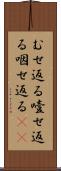 むせ返る噎せ返
る咽せ返る